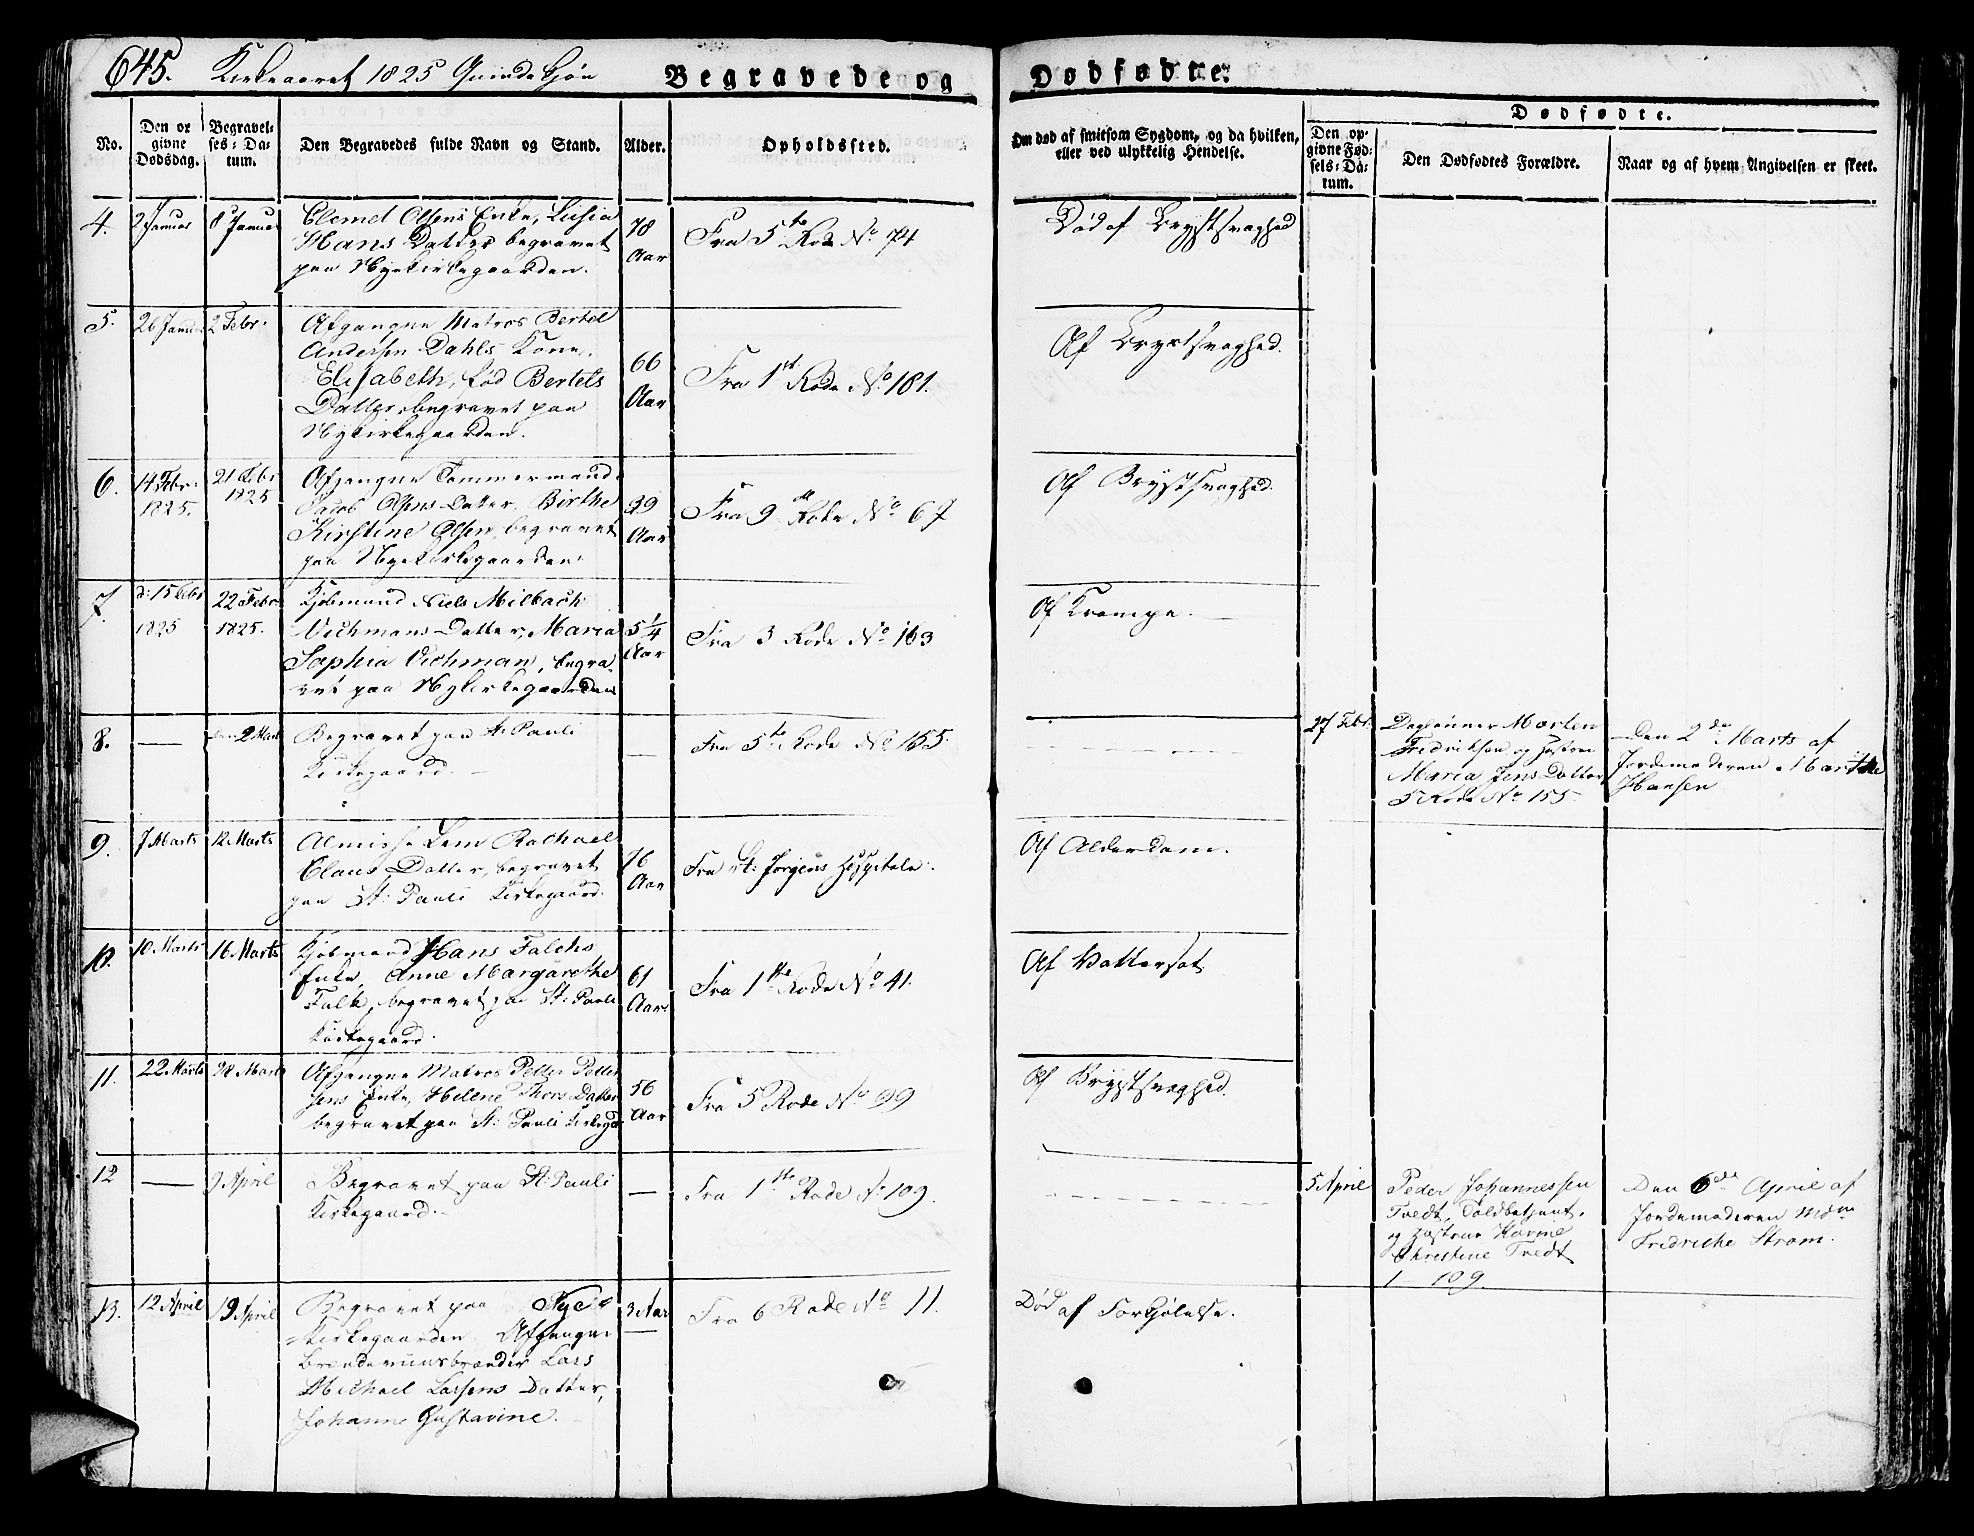 645. Kirkeaaret 1825 Qvindekjøn Begravede og Dødfødte.
No. Den opgivne Dødsdag. Begravelses-Datum. Den Begravedes fulde Navn og Stand. Alder. Opholdssted. Om død af smitsom Sygdom, og da hvilken, eller ved ulykkelig Hendelse. Den opgivne Fødsels-Datum. Dødfødte. Den Dødfødtes Forældre. Naar og af hvem Angivelsen er skeet.
4. 2 Januar 8 Januar Clemet Olsens Enke, Lusia
Hans Datter begravet
paa Nyekirkegaarden.
78 Aar
Fra 5te Rode No 74
Død af Brystsvaghed
5. 26 Januar 2 Febr: Afgangne Matros Bertel
Andersen Dahls Kone,
Elisabeth, fød Bertels
Datter, begravet paa
Nykirkegaarden.
66 Aar
Fra 1ste Rode No 181.
Af Brystsvaghed.
6. 14 Febr: 1825. 21 Febr 1825 Afgangne Tømmermand
Jacob Olsens Datter, Birthe
Kirstine Olsen, begravet
paa Nyekirkegaarden.
39 Aar
Fra 9 Rode No 67
Af Brystsvaghed.
7. d: 15 Febr 1825 22 Febr 1825. Kjøbmand Niels Milbach
Vichmans Datter, Maria
Sophia Vichman, begra-
vet paa Nykirkegaarden
5 1/4 Aar
Fra 3 Rode No 163
Af Krampe.
8. — 2 Marts Begravet paa St: Pauli
Kirkegaard. —
—
Fra 5te Rode No 155.
27 Febr. Daglønner Morten
Fredriksen og Hustrue
Maria Jens Datter
5 Rode No 155.
Den 2den Marts af
Jordemoderen Marthe
Hansen
9. 7 Marts 12 Marts Almisse Lem Rachael
Claus Datter, begravet
paa St: Pauli Kirkegaard.
76 Aar
Fra St: Jørgens Hospitale.
Af Alderdom.
10. 10 Marts 16 Marts Kjøbmand Hans Falchs
Enke, Anne Margarethe
Falk, begravet paa St: Pauli
Kirkegaard.
61 Aar
Fra 1ste Rode No 41.
Af Vattersot
11. 22 Marts 28 Marts Afgangne Matros Petter Petter
sens Enke, Helene Thors Datter
begravet paa St: Pauli Kirkegd
56 Aar
Fra 5 Rode No 99
Af Brystsvaghed.
12 — 9 April Begravet paa St: Pauli
Kirkegaard. —
—
Fra 1ste Rode No 109.
5 April Peder Johannessen
Tvedt, Toldbetjent,
og Hustrue Karine
Christine Tvedt
1 — 109.
Den 6de April af
Jordemoderen Mdm
Fredriche Strøm.
13. 12 April 19 April Begravet paa Nye-
Kirkegaarden Afgangne
Brændeviinsbrænder Lars
Michael Larsens Datter,
Johanne Gustavine.
3 Aar
Fra 6 Rode No 11.
Død af Forkjølelse.